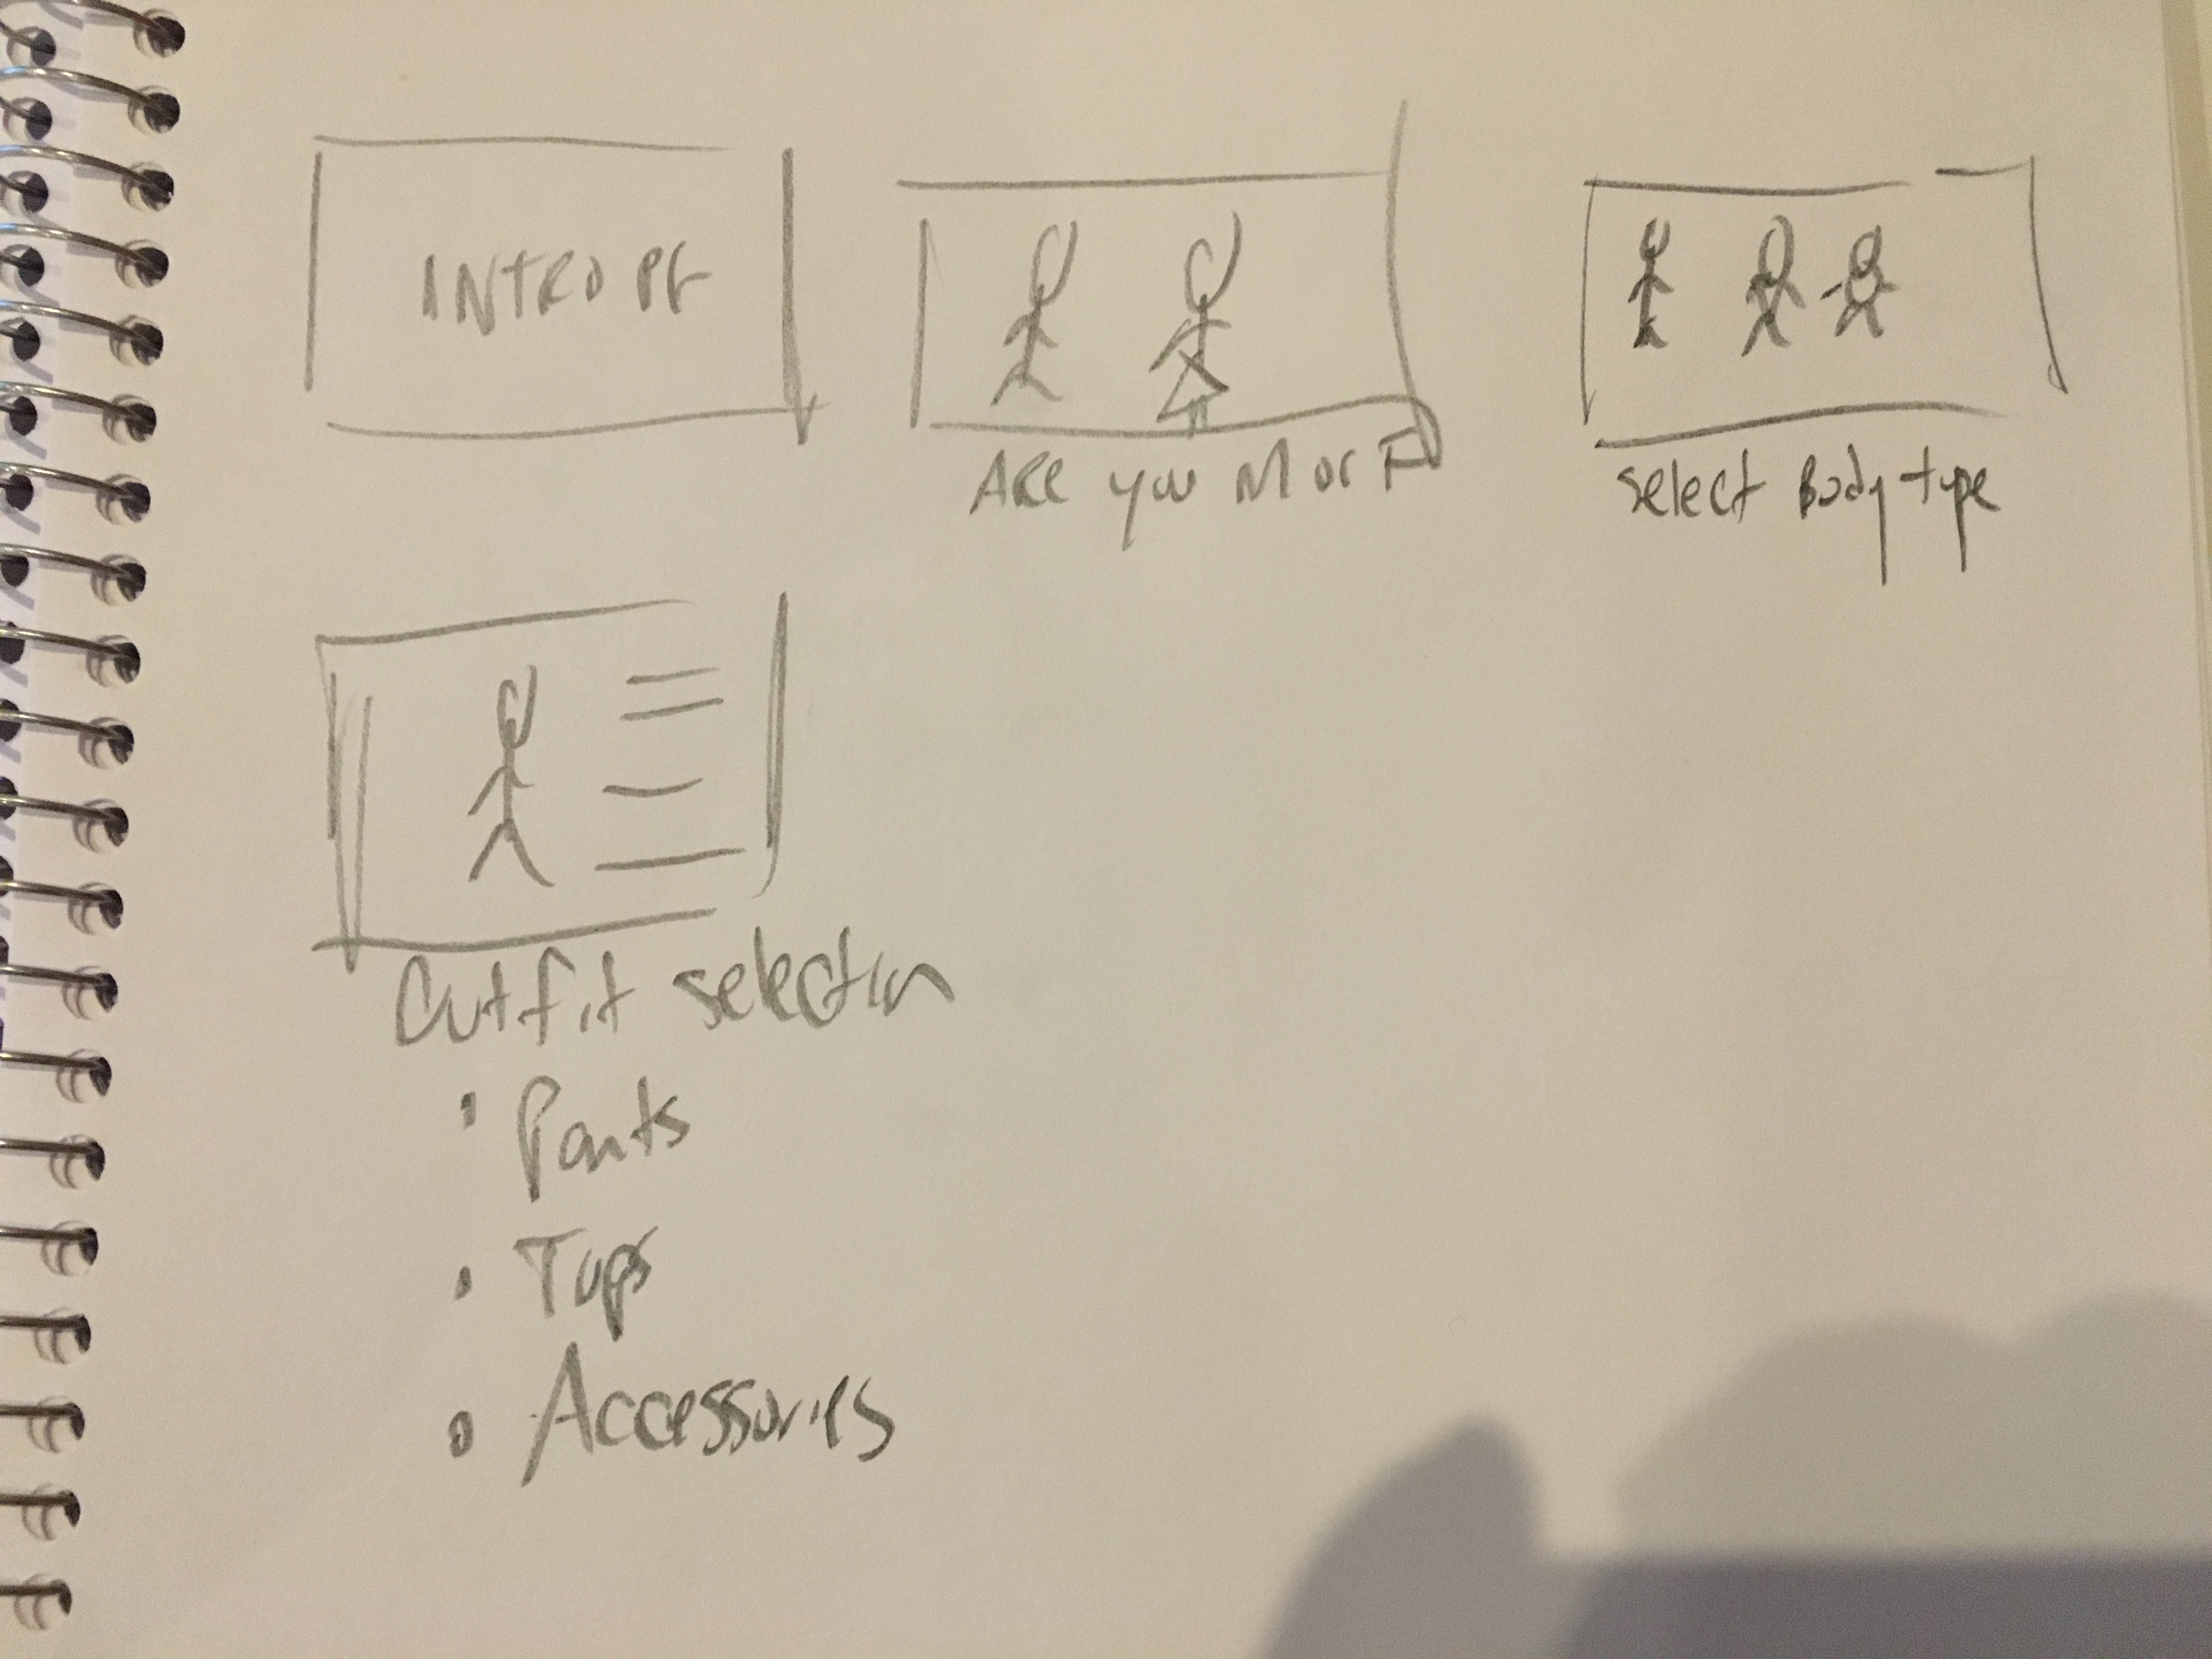 INTRO PG
ARE you M or F
select Body type
Outfit selectin
• Pants
• Tops
• Accessories